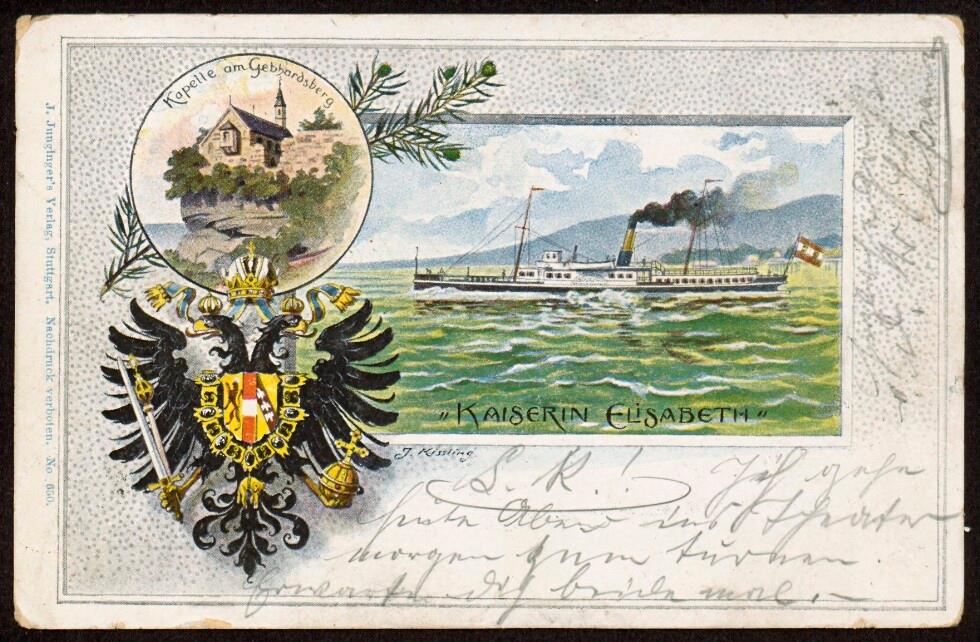 Kapelle am Gebhardsberg
„KAISERIN ELISABETH"
J. Kissling
J. Junginger's Verlag, Stuttgart. Nachdruck verboten. No 650.
L. K.! Ich gehe
heute Abend ins Theater
morgen zum turnen.
Erwarte dich beide mal.